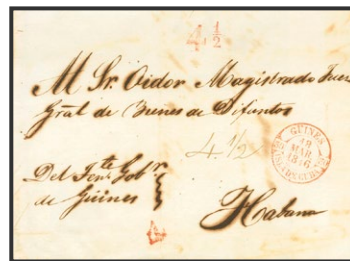 4 1/2
Al Sr. Oidor Magistrado Juez
Gral de Bienes de Difuntos
4. 1/2
GÜINES
18
MAR
1846
Del Tente Gobr
de Güines
Habana